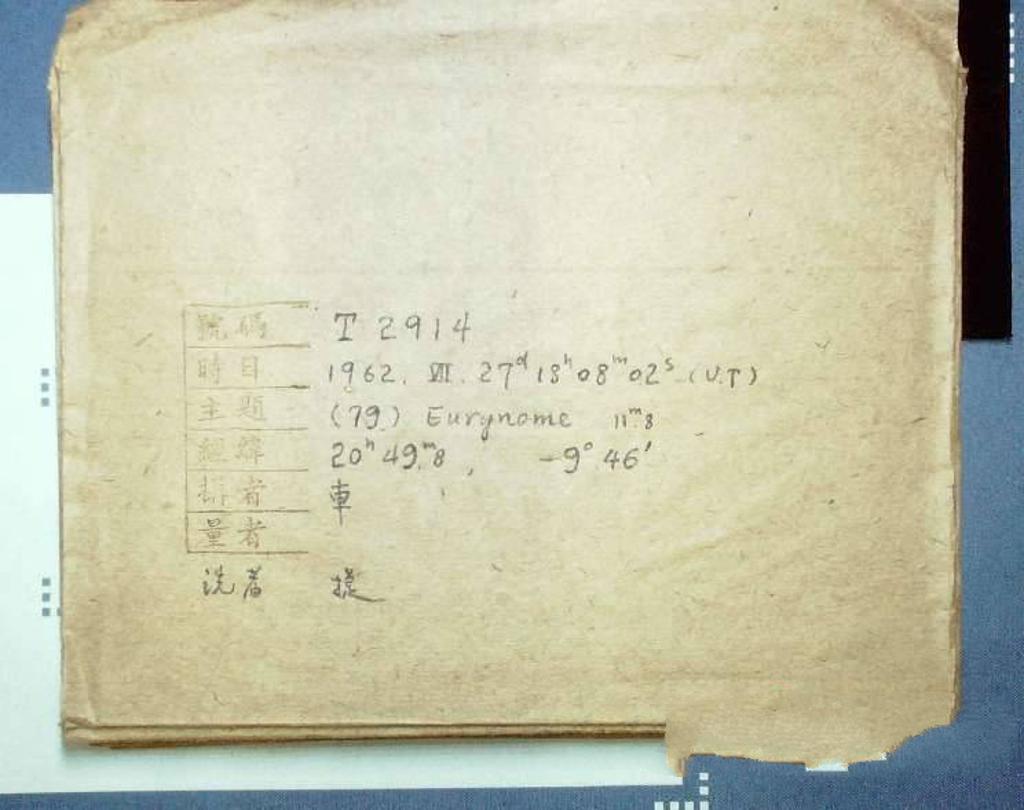 號碼 T 2914
時日 1962. VII. 27ᵈ 18ʰ 08ᵐ 02ˢ (U.T)
主題 (79) Eurynome 11ᵐ.8
經緯 20ʰ 49ᵐ.8, -9° 46′
攝者 車
量者
洗者